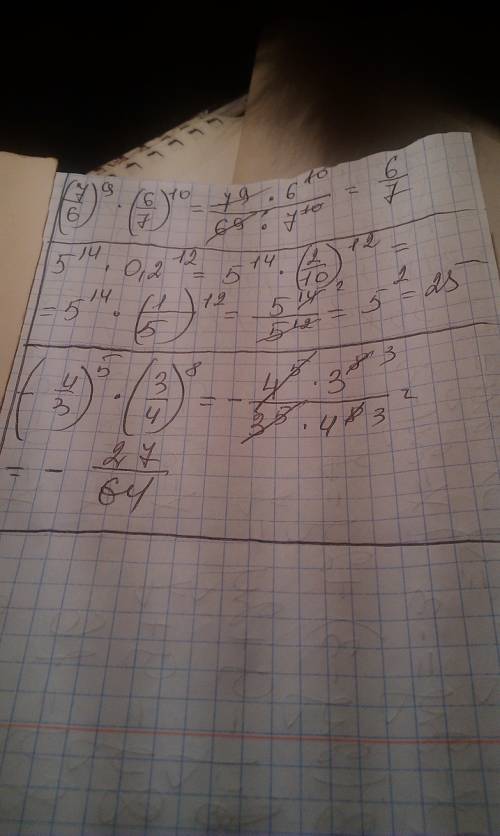 (7/6)^9 · (6/7)^10 = 7^9 · 6^10 / 6^9 · 7^10 = 6/7
5^14 · 0,2^12 = 5^14 · (2/10)^12 =
= 5^14 · (1/5)^12 = 5^14 / 5^12 = 5^2 = 25
(-4/3)^5 · (3/4)^8 = - 4^5 · 3^8 3 / 3^5 · 4^8 3 =
= - 27/64